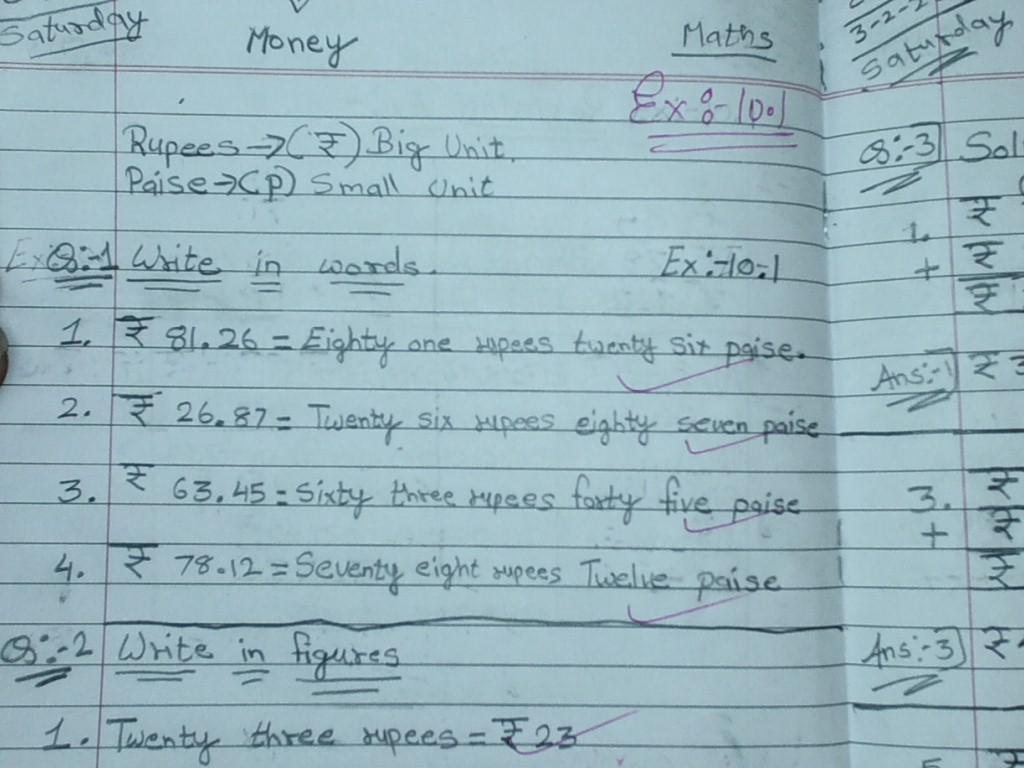 Saturday Money Maths
Ex:-10.1
Rupees → (₹) Big Unit.
Paise → (p) Small Unit
Q:-1 Write in words. Ex:-10.1
1. ₹ 81.26 = Eighty one rupees twenty six paise.
2. ₹ 26.87 = Twenty six rupees eighty seven paise
3. ₹ 63.45 = Sixty three rupees forty five paise
4. ₹ 78.12 = Seventy eight rupees Twelve paise
Q:-2 Write in figures
1. Twenty three rupees = ₹ 23
3-2-2
Saturday
Q:-3 Sol
1. ₹
+ ₹
₹
Ans:-1 ₹ 3
3. ₹
+ ₹
₹
Ans:-3 ₹